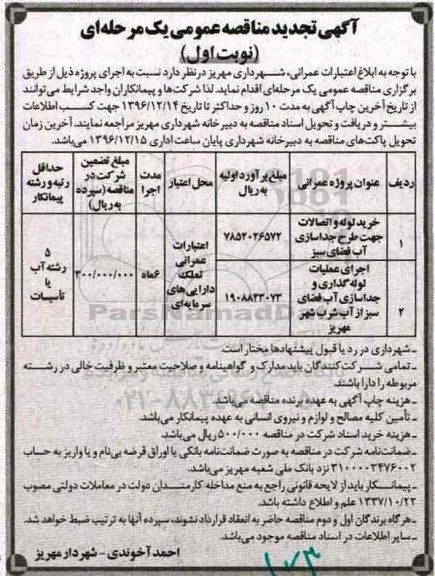 آگهی تجدید مناقصه عمومی یک مرحله‌ای
(نوبت اول)
با توجه به ابلاغ اعتبارات عمرانی، شهرداری مهریز در نظر دارد نسبت به اجرای پروژه ذیل از طریق
برگزاری مناقصه عمومی یک مرحله‌ای اقدام نماید. لذا شرکت‌ها و پیمانکاران واجد شرایط می‌توانند
از تاریخ آخرین چاپ آگهی به مدت ۱۰ روز و حداکثر تا تاریخ ۱۳۹۶/۱۲/۱۴ جهت کسب اطلاعات
بیشتر و دریافت و تحویل اسناد مناقصه به دبیرخانه شهرداری مهریز مراجعه نمایند. آخرین زمان
تحویل پاکت‌های مناقصه به دبیرخانه شهرداری پایان ساعت اداری ۱۳۹۶/۱۲/۱۵ می‌باشد.
ردیف
عنوان پروژه عمرانی
مبلغ برآورد اولیه به ریال
محل اعتبار
مدت اجرا
مبلغ تضمین شرکت در مناقصه (سپرده به ریال)
حداقل رتبه و رشته پیمانکار
۱
خرید لوله و اتصالات
جهت طرح جداسازی
آب فضای سبز
۷۸۵۲۰۲۶۵۷۲
۲
اجرای عملیات
لوله گذاری و
جداسازی آب فضای
سبز از آب شرب شهر
مهریز
۱۹۰۸۸۳۳۰۷۳
اعتبارات
عمرانی
تملک
دارایی‌های
سرمایه‌ای
۶ماه
۳۰۰/۰۰۰/۰۰۰
۵
رشته آب
یا
تأسیسات
ـ شهرداری در رد یا قبول پیشنهادها مختار است.
ـ تمامی شرکت‌کنندگان باید مدارک و گواهینامه و صلاحیت معتبر و ظرفیت خالی در رشته
مربوطه را دارا باشند.
ـ هزینه چاپ آگهی به عهده برنده مناقصه می‌باشد.
ـ تأمین کلیه مصالح و لوازم و نیروی انسانی به عهده پیمانکار می‌باشد.
ـ هزینه خرید اسناد شرکت در مناقصه ۵۰۰/۰۰۰ ریال می‌باشد.
ـ ضمانت‌نامه شرکت در مناقصه به صورت ضمانت‌نامه بانکی یا اوراق قرضه بی‌نام و یا واریز به حساب
۳۱۰۰۰۰۳۴۷۶۰۰۲ نزد بانک ملی شعبه مهریز می‌باشد.
ـ پیمانکار باید از لایحه قانونی راجع به منع مداخله کارمندان دولت در معاملات دولتی مصوب
۱۳۳۷/۱۰/۲۲ علم و اطلاع داشته باشد.
ـ هرگاه برندگان اول و دوم مناقصه حاضر به انعقاد قرارداد نشوند، سپرده آنها به ترتیب ضبط خواهد شد.
ـ سایر اطلاعات در اسناد مناقصه موجود می‌باشد.
احمد آخوندی - شهردار مهریز